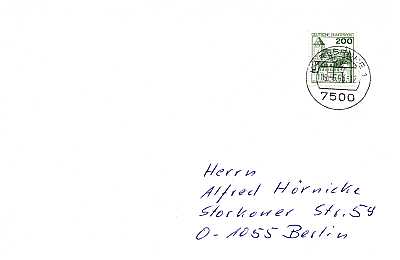 DEUTSCHE BUNDESPOST
200
KARLSRUHE 1
7500
Herrn
Alfred Hörnicke
Storkower Str. 59
O-1055 Berlin